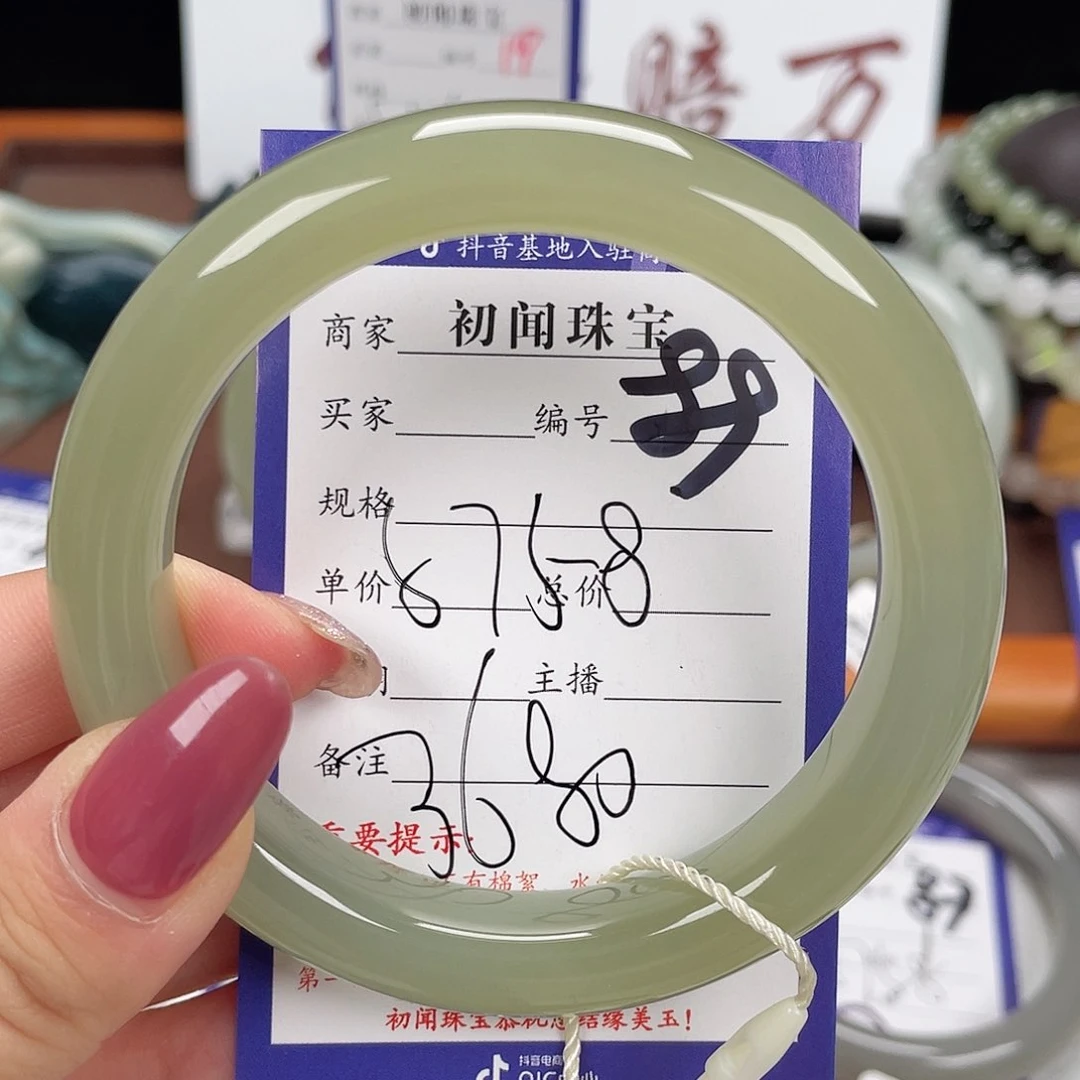 赔万
抖音基地入驻商
商家 初闻珠宝
买家 编号 89
规格
6758
单价 总价
主播
备注
3680
重要提示:
有棉絮 水
第一
初闻珠宝恭祝您结缘美玉!
抖音电商
89